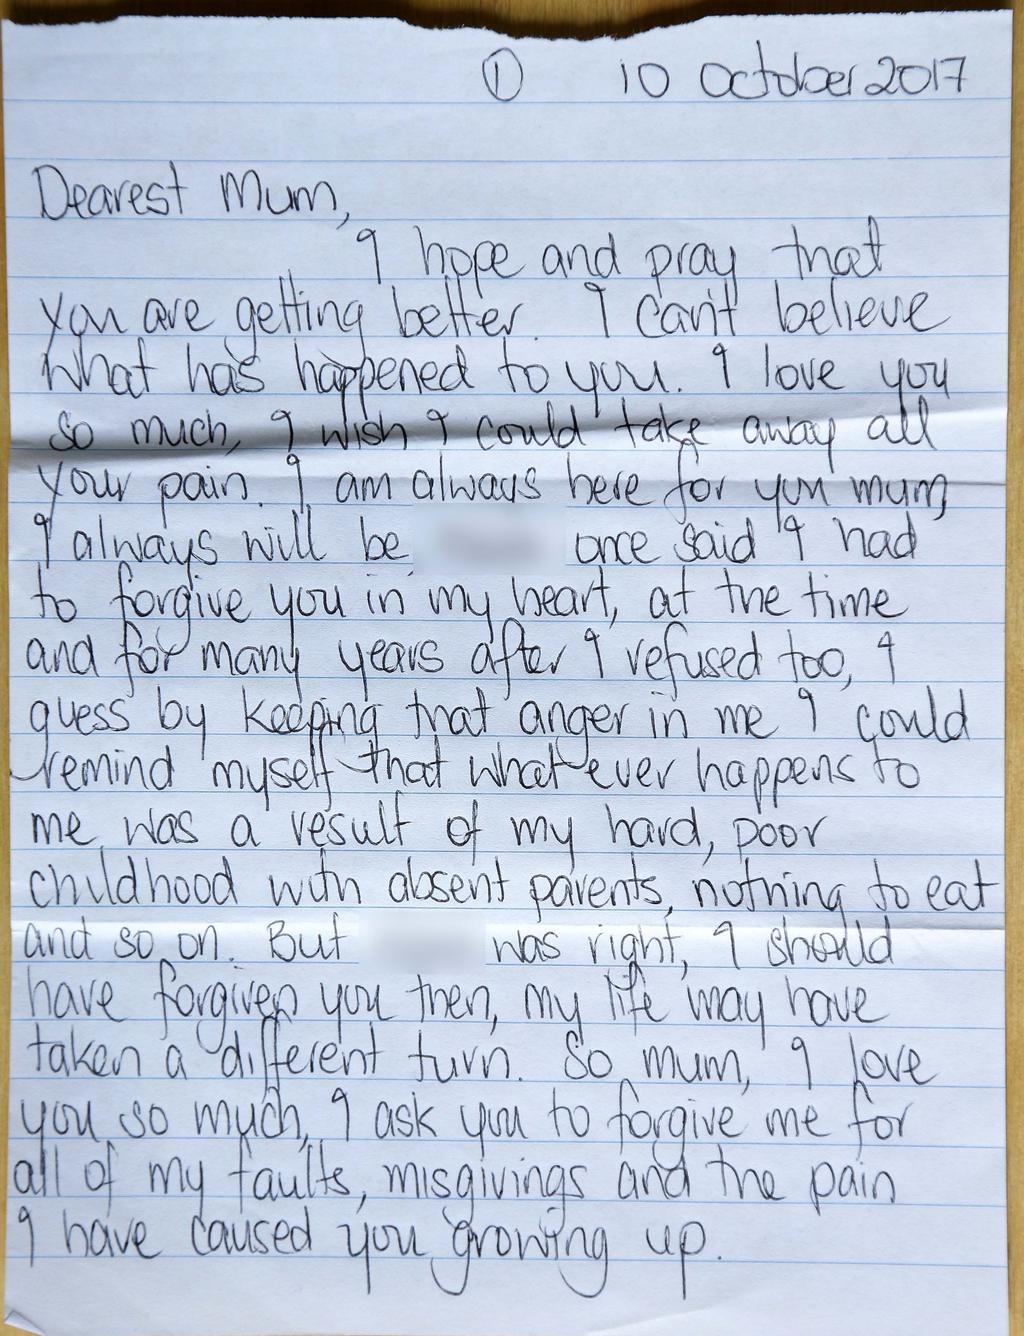 ① 10 October 2017
Dearest Mum,
I hope and pray that
you are getting better. I can't believe
what has happened to you. I love you
so much, I wish I could take away all
your pain. I am always here for you mum,
I always will be. once said I had
to forgive you in my heart, at the time
and for many years after I refused too, I
guess by keeping that anger in me I could
remind myself that what ever happens to
me was a result of my hard, poor
childhood with absent parents, nothing to eat
and so on. But was right, I should
have forgiven you then, my life may have
taken a different turn. So mum, I love
you so much, I ask you to forgive me for
all of my faults, misgivings and the pain
I have caused you growing up.